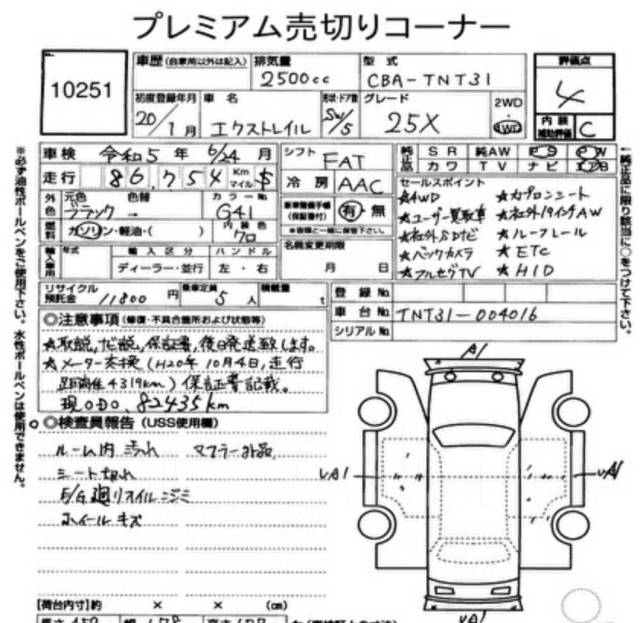 プレミアム売切りコーナー
10251
車歴(自家用以外は記入) 排気量 2500cc 型式 CBA-TNT31
評価点 4
初度登録年月 20/1月 車名 エクストレイル 形状・ドア数 SW/5 グレード 25X 2WD 4WD
内装補助評価 C
車検 令和5年 6/24月 シフト FAT 純正品 SR 純AW PS PW
走行 86,754 Km マイル $ 冷房 AAC カワ TV ナビ エアB
外色 元色 ブラック 色替 カラーNo. G41
燃料 ガソリン・軽油・( ) 内装色 クロ
新車整備手帳(保証書付) 有・無
※車歴と一緒に保管下さい。
セールスポイント
★4WD ★カプロンシート
★ユーザー買取車 ★社外19インチAW
★社外SDナビ ★ルーフレール
★バックカメラ ★ETC
★フルセグTV ★HID
輸入車用 年式 輸入区分 ディーラー・並行 ハンドル 左・右
名義変更期限 月 日
リサイクル預託金 11800円 乗車定員 5人 積載量 t
登録No.
車台No. TNT31-004016
シリアルNo.
◎注意事項(修復・不具合箇所および状態等)
★取説,ナビ説,保証書,後日発送致します。
★メーター交換(H20年10月4日,走行
距離4319km)保証書記載。
現ODO,82435km
◎検査員報告(USS使用欄)
ルーム内汚れ マフラー外品
シート切れ
E/G廻りオイルニジミ
ホイールキズ
A1
UA1
UA1
UA1
【荷台内寸】約 × × (cm)
※必ず油性ボールペンをご使用下さい。水性ボールペンは使用できません。
↑純正品に限り該当に○をつけて下さい。